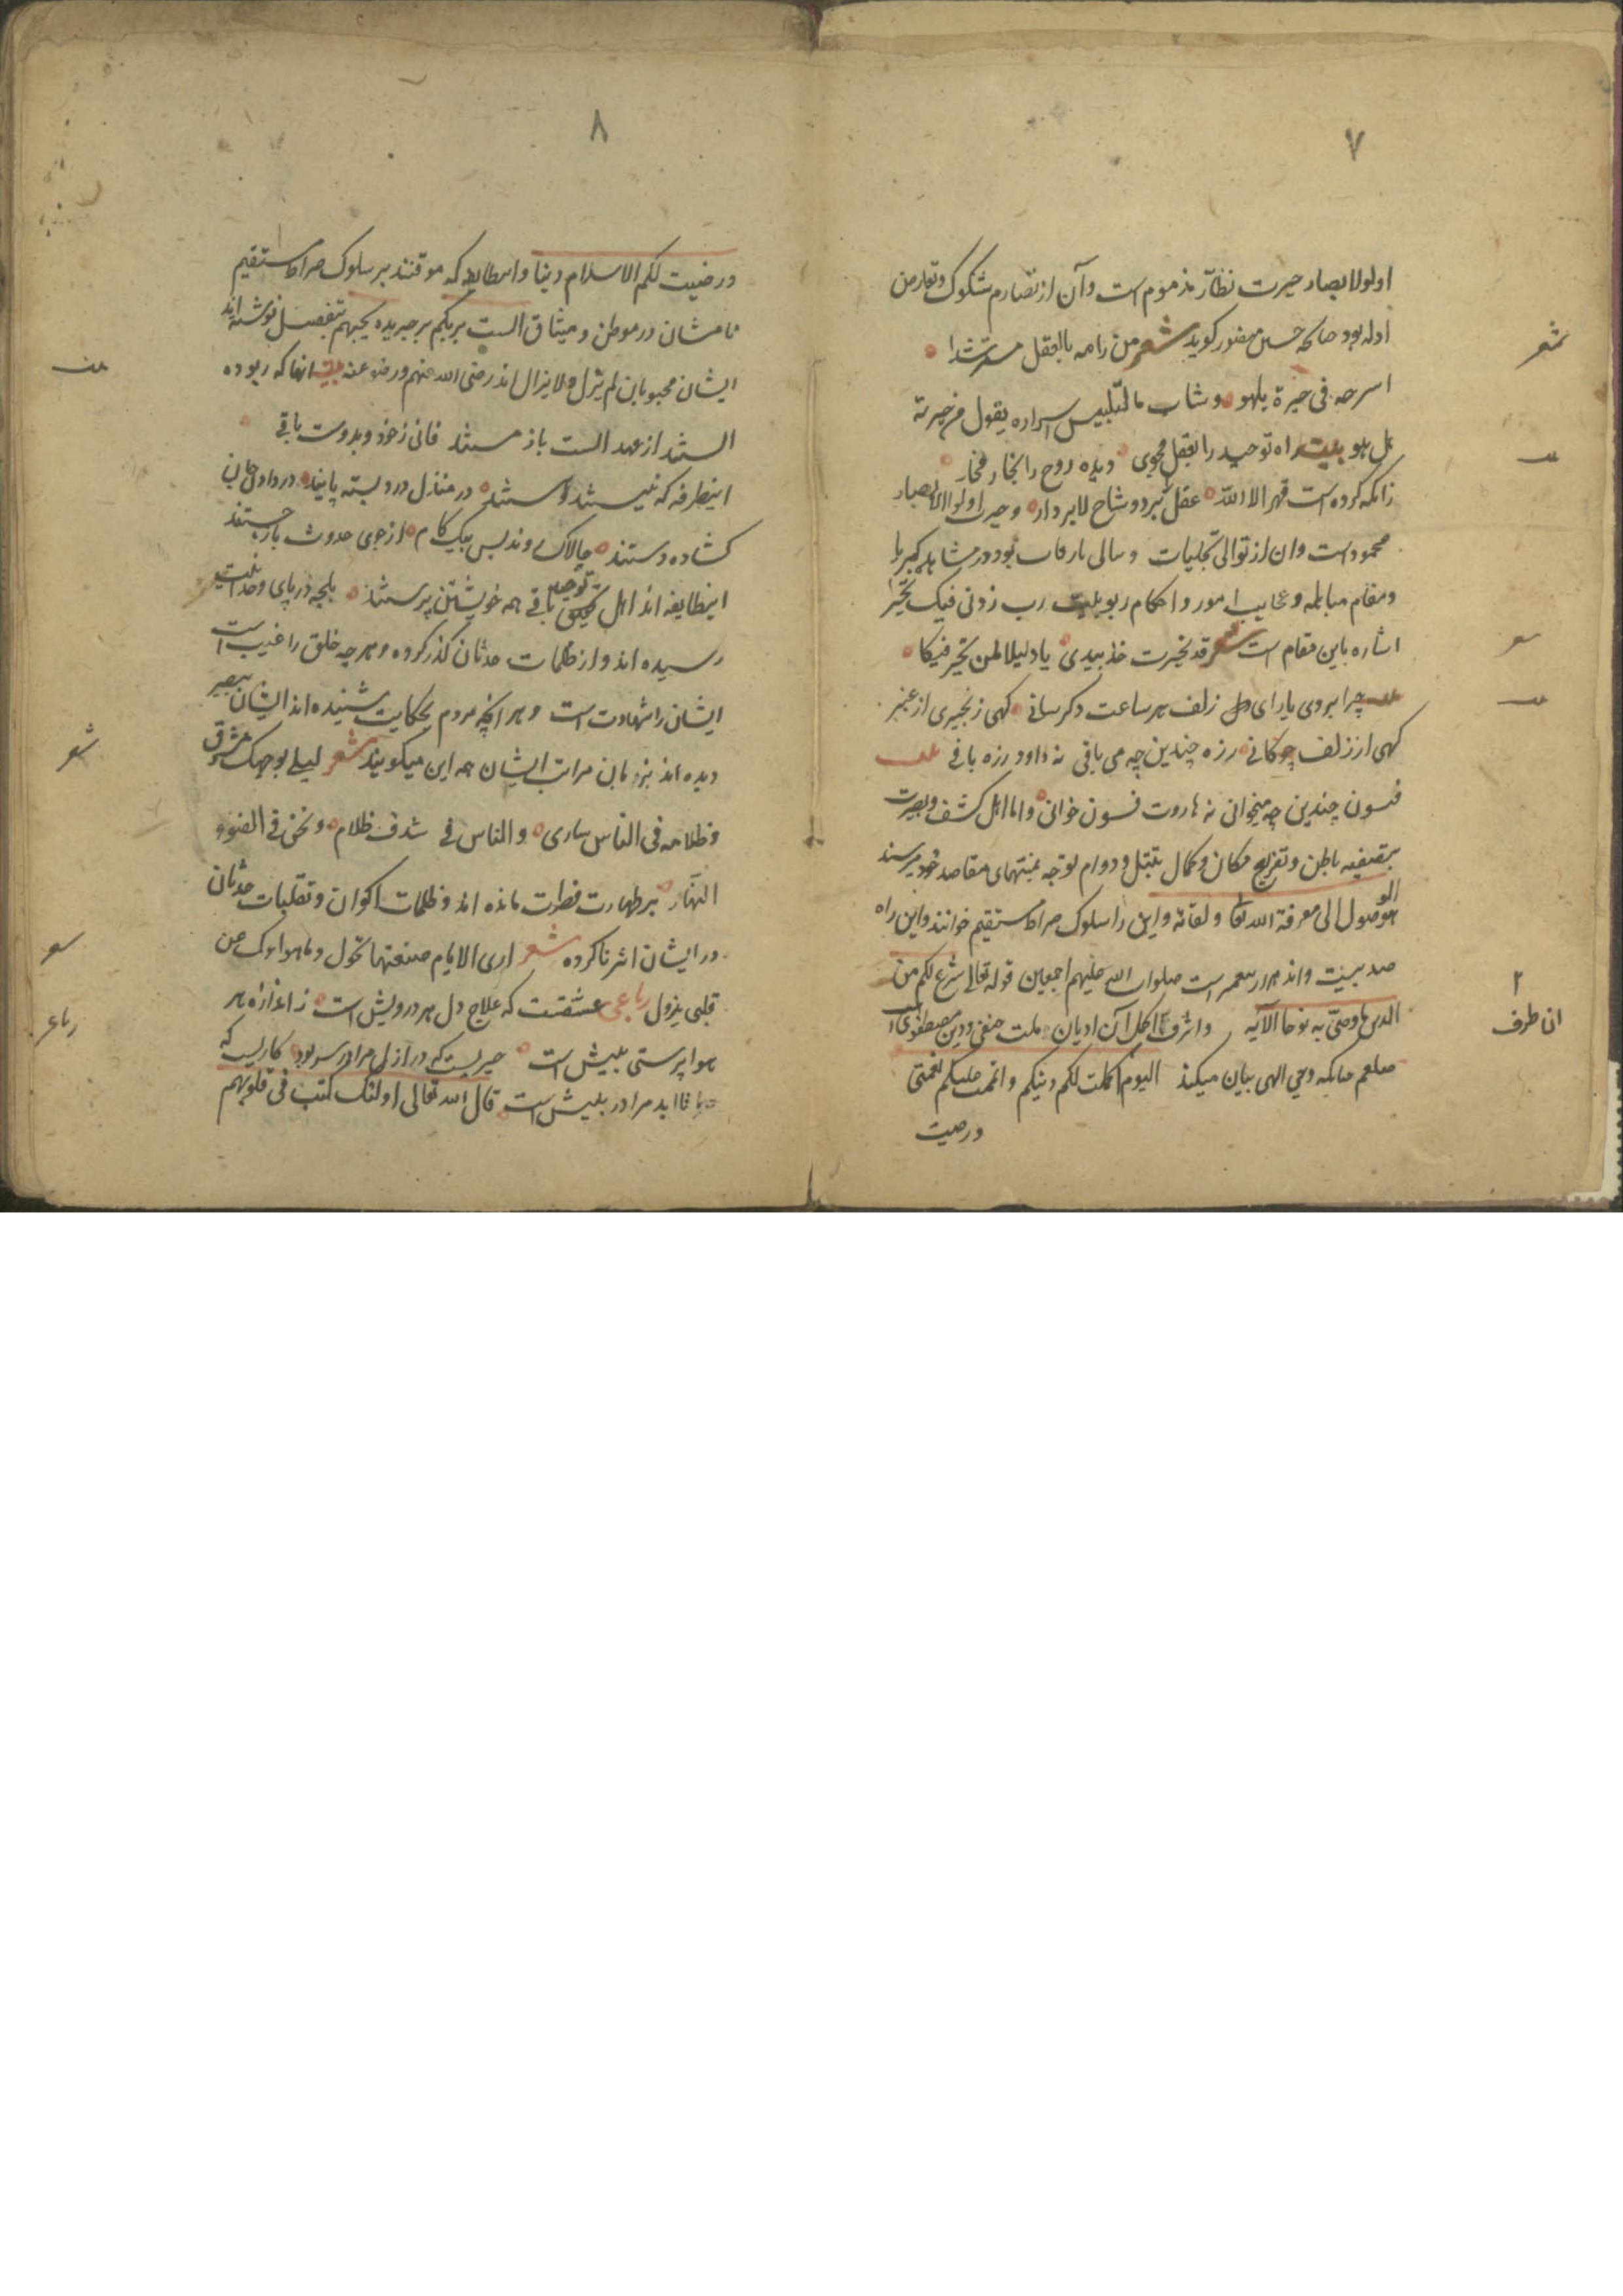 ٧
اولولابصار حیرت نظّار مذموم است وآن از تصادم شکوک وتعارض
ادله بود چنانکه حسین منصور گوید شعر من رامه بالعقل مسترشدا
اسرحه فی حیرة یلهو وشاب بالتلبیس اسراره یقول من حیرته
هل هو بیت راه توحید را بعقل مجوی دیده روح را بخار مخار
زانکه کرده است قهر الا الله عقل را بر دو شاخ لا بر دار وحیرت اولوالابصار
محمود است وان از توالی تجلیات و تتالی بارقات بود در مشاهده کبریا
ومقام مبابله وعجایب امور واحکام ربوبیت رب زدنی فیک تحیرا
اشاره باین مقام است شعر قد تحیرت خذ بیدی یا دلیلا لمن تحیر فیکا
چرا بروی یار ای زلف هر ساعت دگرسانی گهی زنجیری از عنبر
گهی از زلف چوکانی زره چندین چه می بافی نه داود زره بافی
فسون چندین چه میخوانی نه هاروت فسون خوانی واما اهل کشف وبصیرت
بتصفیه باطن وتفریغ مکان وکمال تبتل ودوام توجه بمنتهای مقاصد خود میرسند
هو الوصول الی معرفة الله تعا ولقائه واین را سلوک صراط مستقیم خوانند واین راه
صلوات الله علیهم اجمعین قوله تعالی شرع لکم من
الدین ما وصّی به نوحا الآیه واشرف واکمل آن ادیان ملت حنفی ودین مصطفوی است
صلعم چنانکه وحی الهی بیان میکند الیوم اکملت لکم دینکم واتممت علیکم نعمتی
ورضیت
شعر
شعر
٢
ان طرف
٨
ورضیت لکم الاسلام دینا وانطایفه که موقنند بر سلوک صراط مستقیم
نامشان در موطن و میثاق الست بربکم بر جریده یحبهم بتفصیل نوشته اند
ایشان محبوبان لم یزل ولایزال اند رضی الله عنهم ورضوا عنه بیت انها که ربوده
الستند از عهد الست باز مستند فانی زخود وبدوست باقی
اینطرفه که نیستند وهستند در منزل درد بسته پایند در دادن جان
کشاده دستند چالاک وندیس بیک کام از جوی حدوث باز جستند
اینطایفه اند اهل توحید باقی همه خویشتن پرستند
رسیده اند واز ظلمات حدثان گذر کرده وهر چه خلق را غیب است
ایشان را شهادت است وهر انچه مردم بحکایت شنیده اند ایشان ببصر
دیده اند بزبان مرات ایشان همه این میگویند شعر لیلی بوجهک مشرق
وظلامه فی الناس ساری والناس فی سدف ظلام ونحن فی الضوء
النهّار بر طهارت فطرت مانده اند وظلمات اکوان وتقلبات حدثان
در ایشان اثر ناکرده شعر اری الایام صبغتها تحول وما هواک من
قلبی یزول رباعی عشقست که علاج دل هر درویش است ز اندازه هر
هوا پرستی بیش است چیزیست که در ازل مرا در سر بود کاریست که
تا ابد مرا در پیش است قال الله تعالی اولئک کتب فی قلوبهم
شعر
رباعی